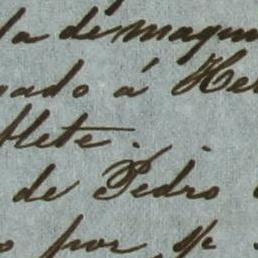 la demaqui
sado á He
flete.
de Pedro
por